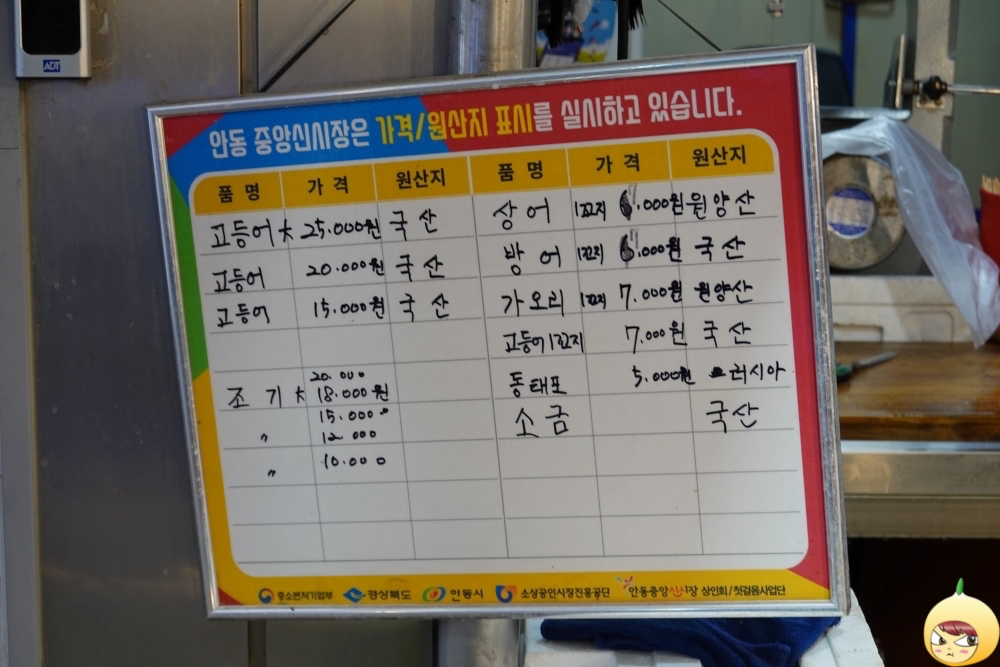 ADT
안동 중앙신시장은 가격/원산지 표시를 실시하고 있습니다.
품명 가격 원산지 품명 가격 원산지
고등어 大 25.000원 국산 상어 1꼬지 6.000원 원양산
고등어 20.000원 국산 방어 1꼬지 6.000원 국산
고등어 15.000원 국산 가오리 1꼬지 7.000원 원양산
고등어1꼬지 7.000원 국산
20.000
조기 大 18.000원 동태포 5.000원 러시아
15.000 소금 국산
〃 12 000
〃 10.000
중소벤처기업부 경상북도 안동시 소상공인시장진흥공단 안동중앙신시장 상인회/첫걸음사업단